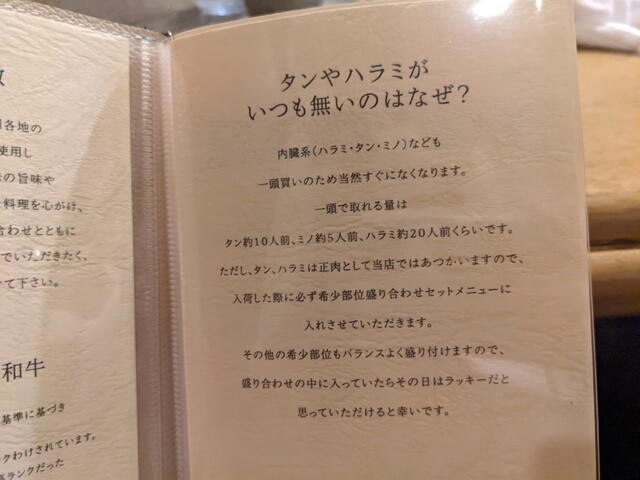 徴
各地の
使用し
の旨味や
料理を心がけ、
合わせとともに
でいただきたく、
て下さい。
和牛
基準に基づき
クわけされています。
高ランクだった
タンやハラミが
いつも無いのはなぜ?
内臓系(ハラミ・タン・ミノ)なども
一頭買いのため当然すぐになくなります。
一頭で取れる量は
タン約10人前、ミノ約5人前、ハラミ約20人前くらいです。
ただし、タン、ハラミは正肉として当店ではあつかいますので、
入荷した際に必ず希少部位盛り合わせセットメニューに
入れさせていただきます。
その他の希少部位もバランスよく盛り付けますので、
盛り合わせの中に入っていたらその日はラッキーだと
思っていただけると幸いです。